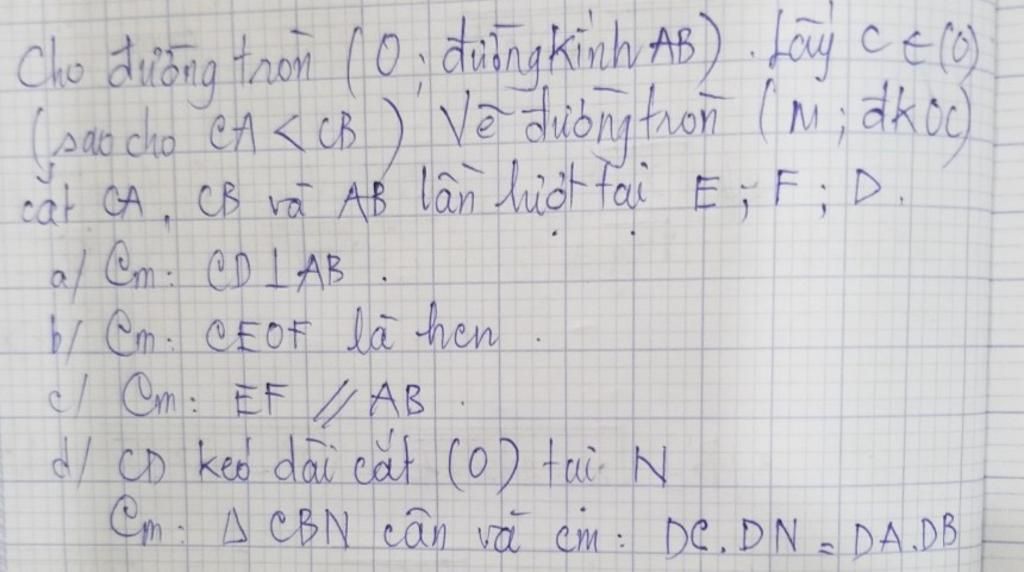 Cho đường tròn (O; đường kính AB). Lấy C ∈ (O)
(sao cho CA < CB) Vẽ đường tròn (M; đk OC)
cắt CA, CB và AB lần lượt tại E; F; D.
a/ Cm: CD ⊥ AB.
b/ Cm: CEOF là hcn.
c/ Cm: EF // AB.
d/ CD kéo dài cắt (O) tại N
Cm: Δ CBN cân và cm: DC.DN = DA.DB